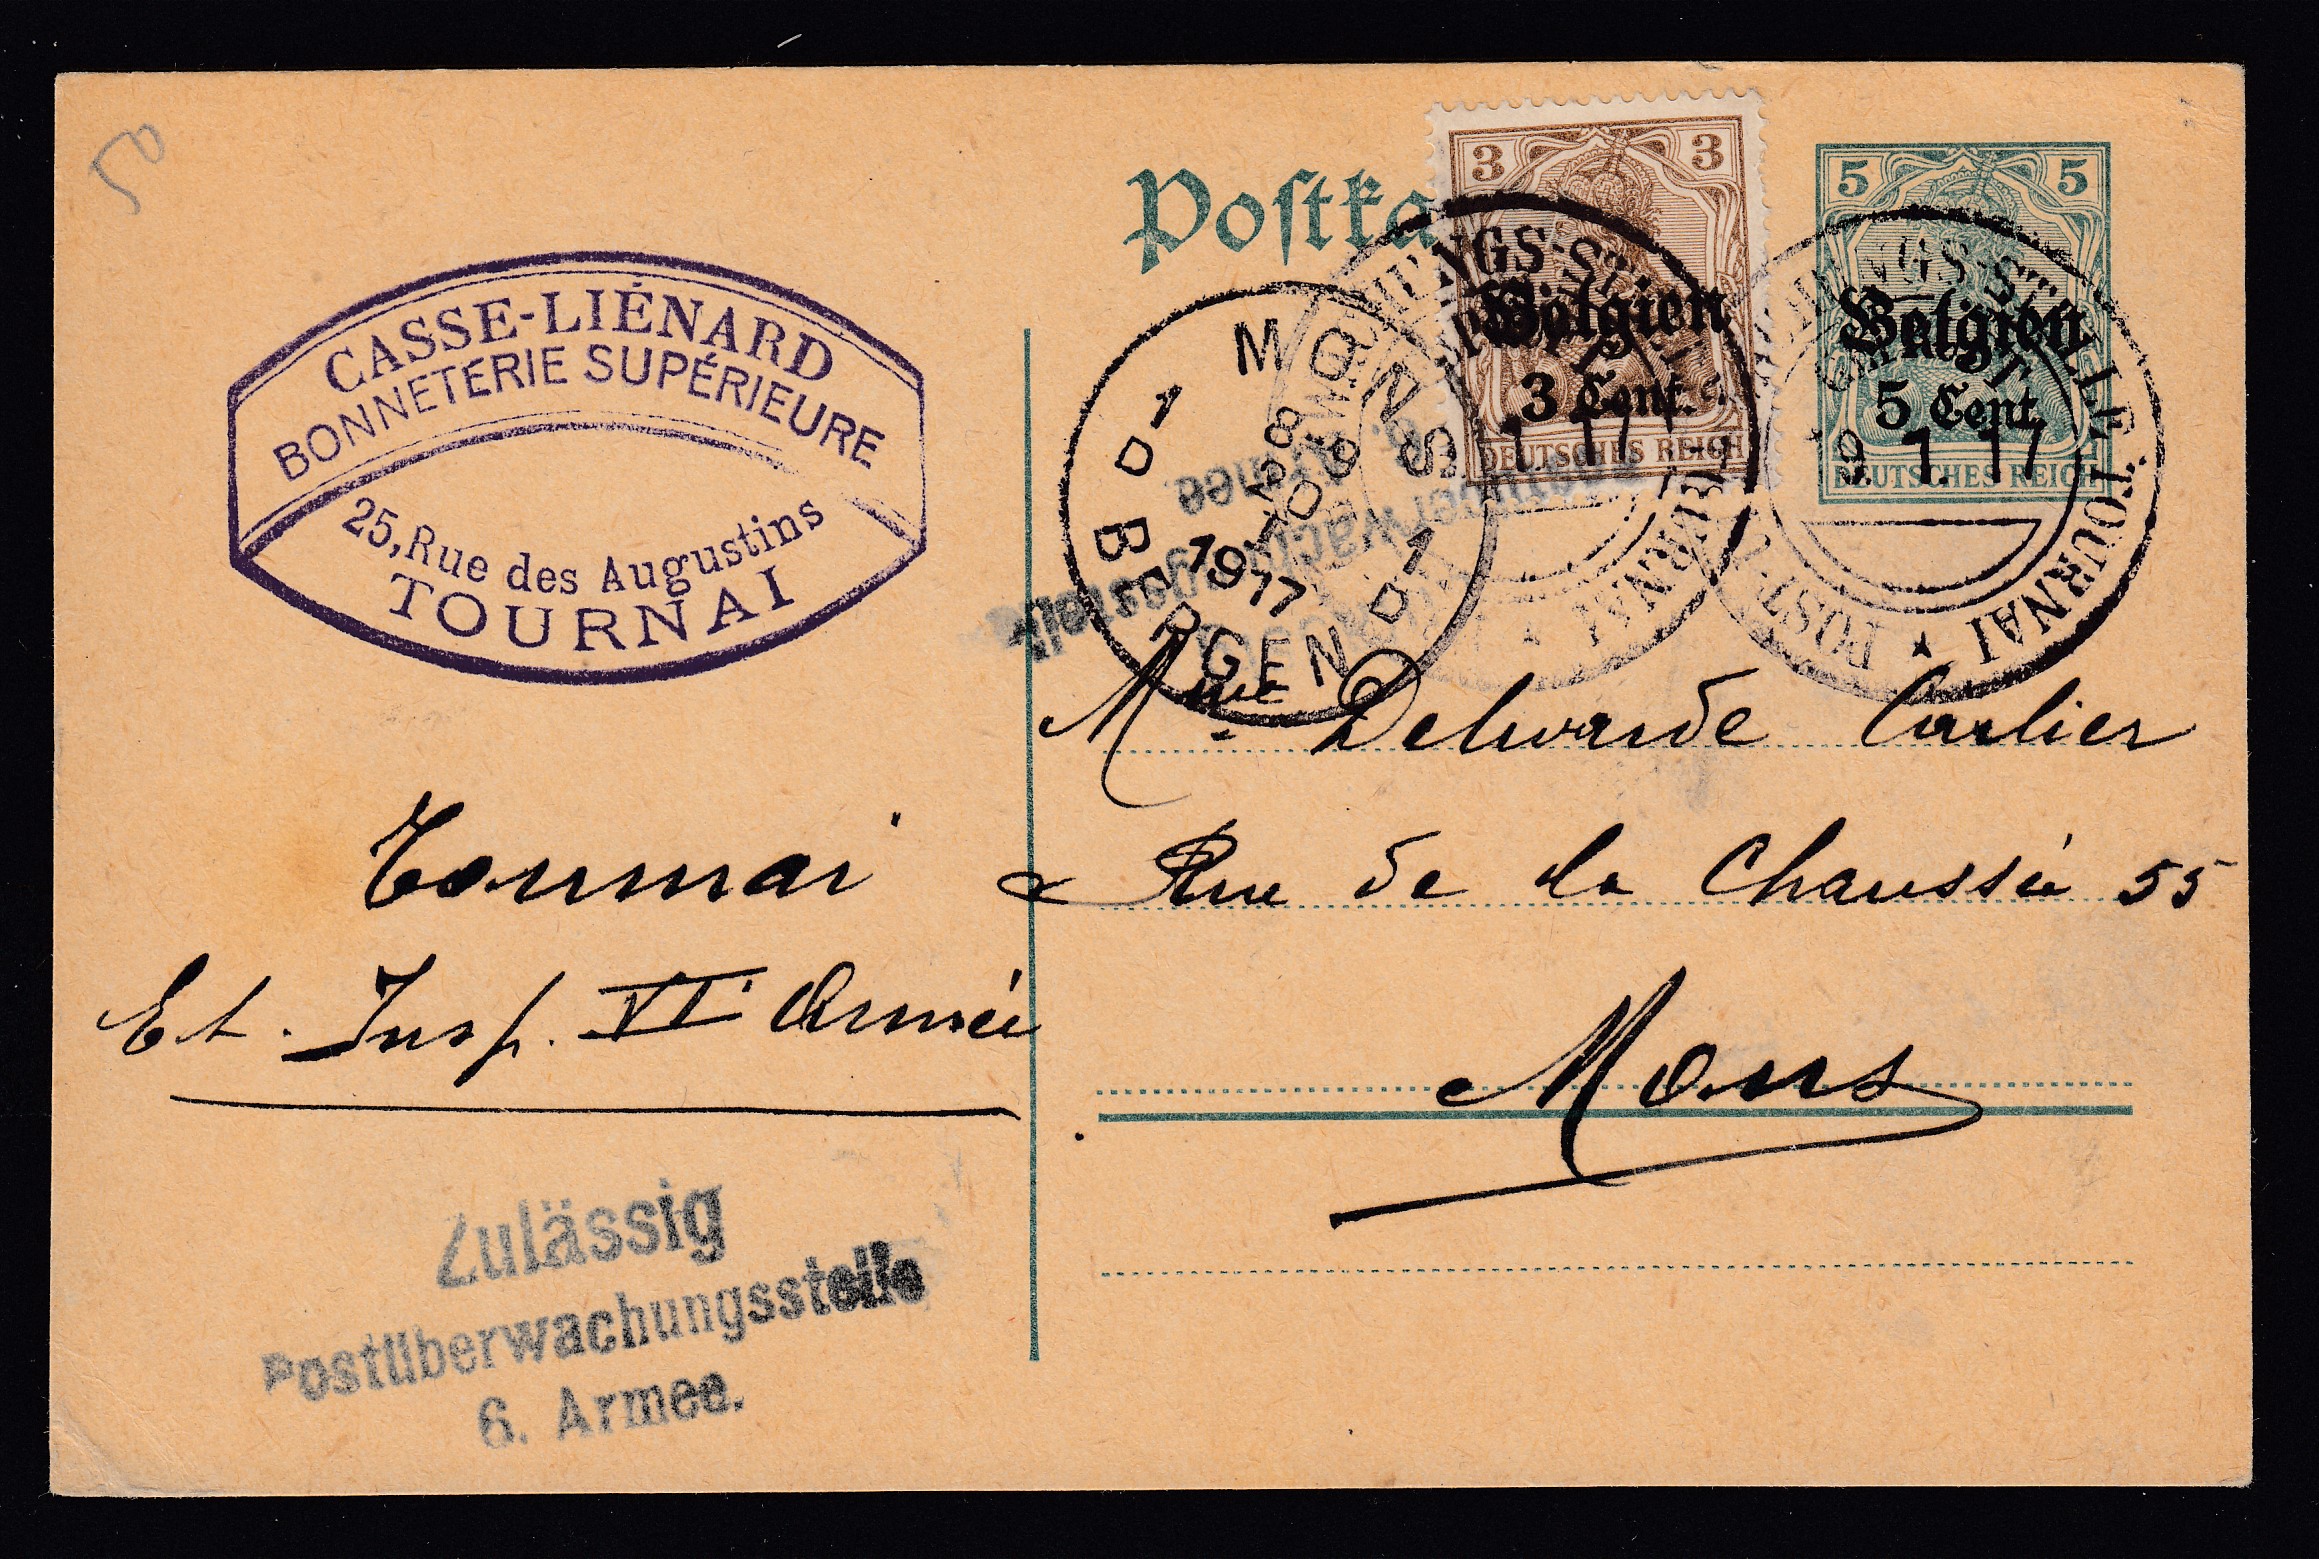 50
CASSE-LIÉNARD
BONNETERIE SUPÉRIEURE
25, Rue des Augustins
TOURNAI
Postka
3 3
Belgien
3 Cent.
DEUTSCHES REICH
5 5
Belgien
5 Cent.
DEUTSCHES REICH
9. 1. 17
TOURNAI
POST-
1 MONS 1
D BERGEN D
1917
Mme Delwarde Carlier
Rue de la Chaussée 55
Mons
Tournai
Et. Insp. VI Armée
Zulässig
Postüberwachungsstelle
6. Armee.